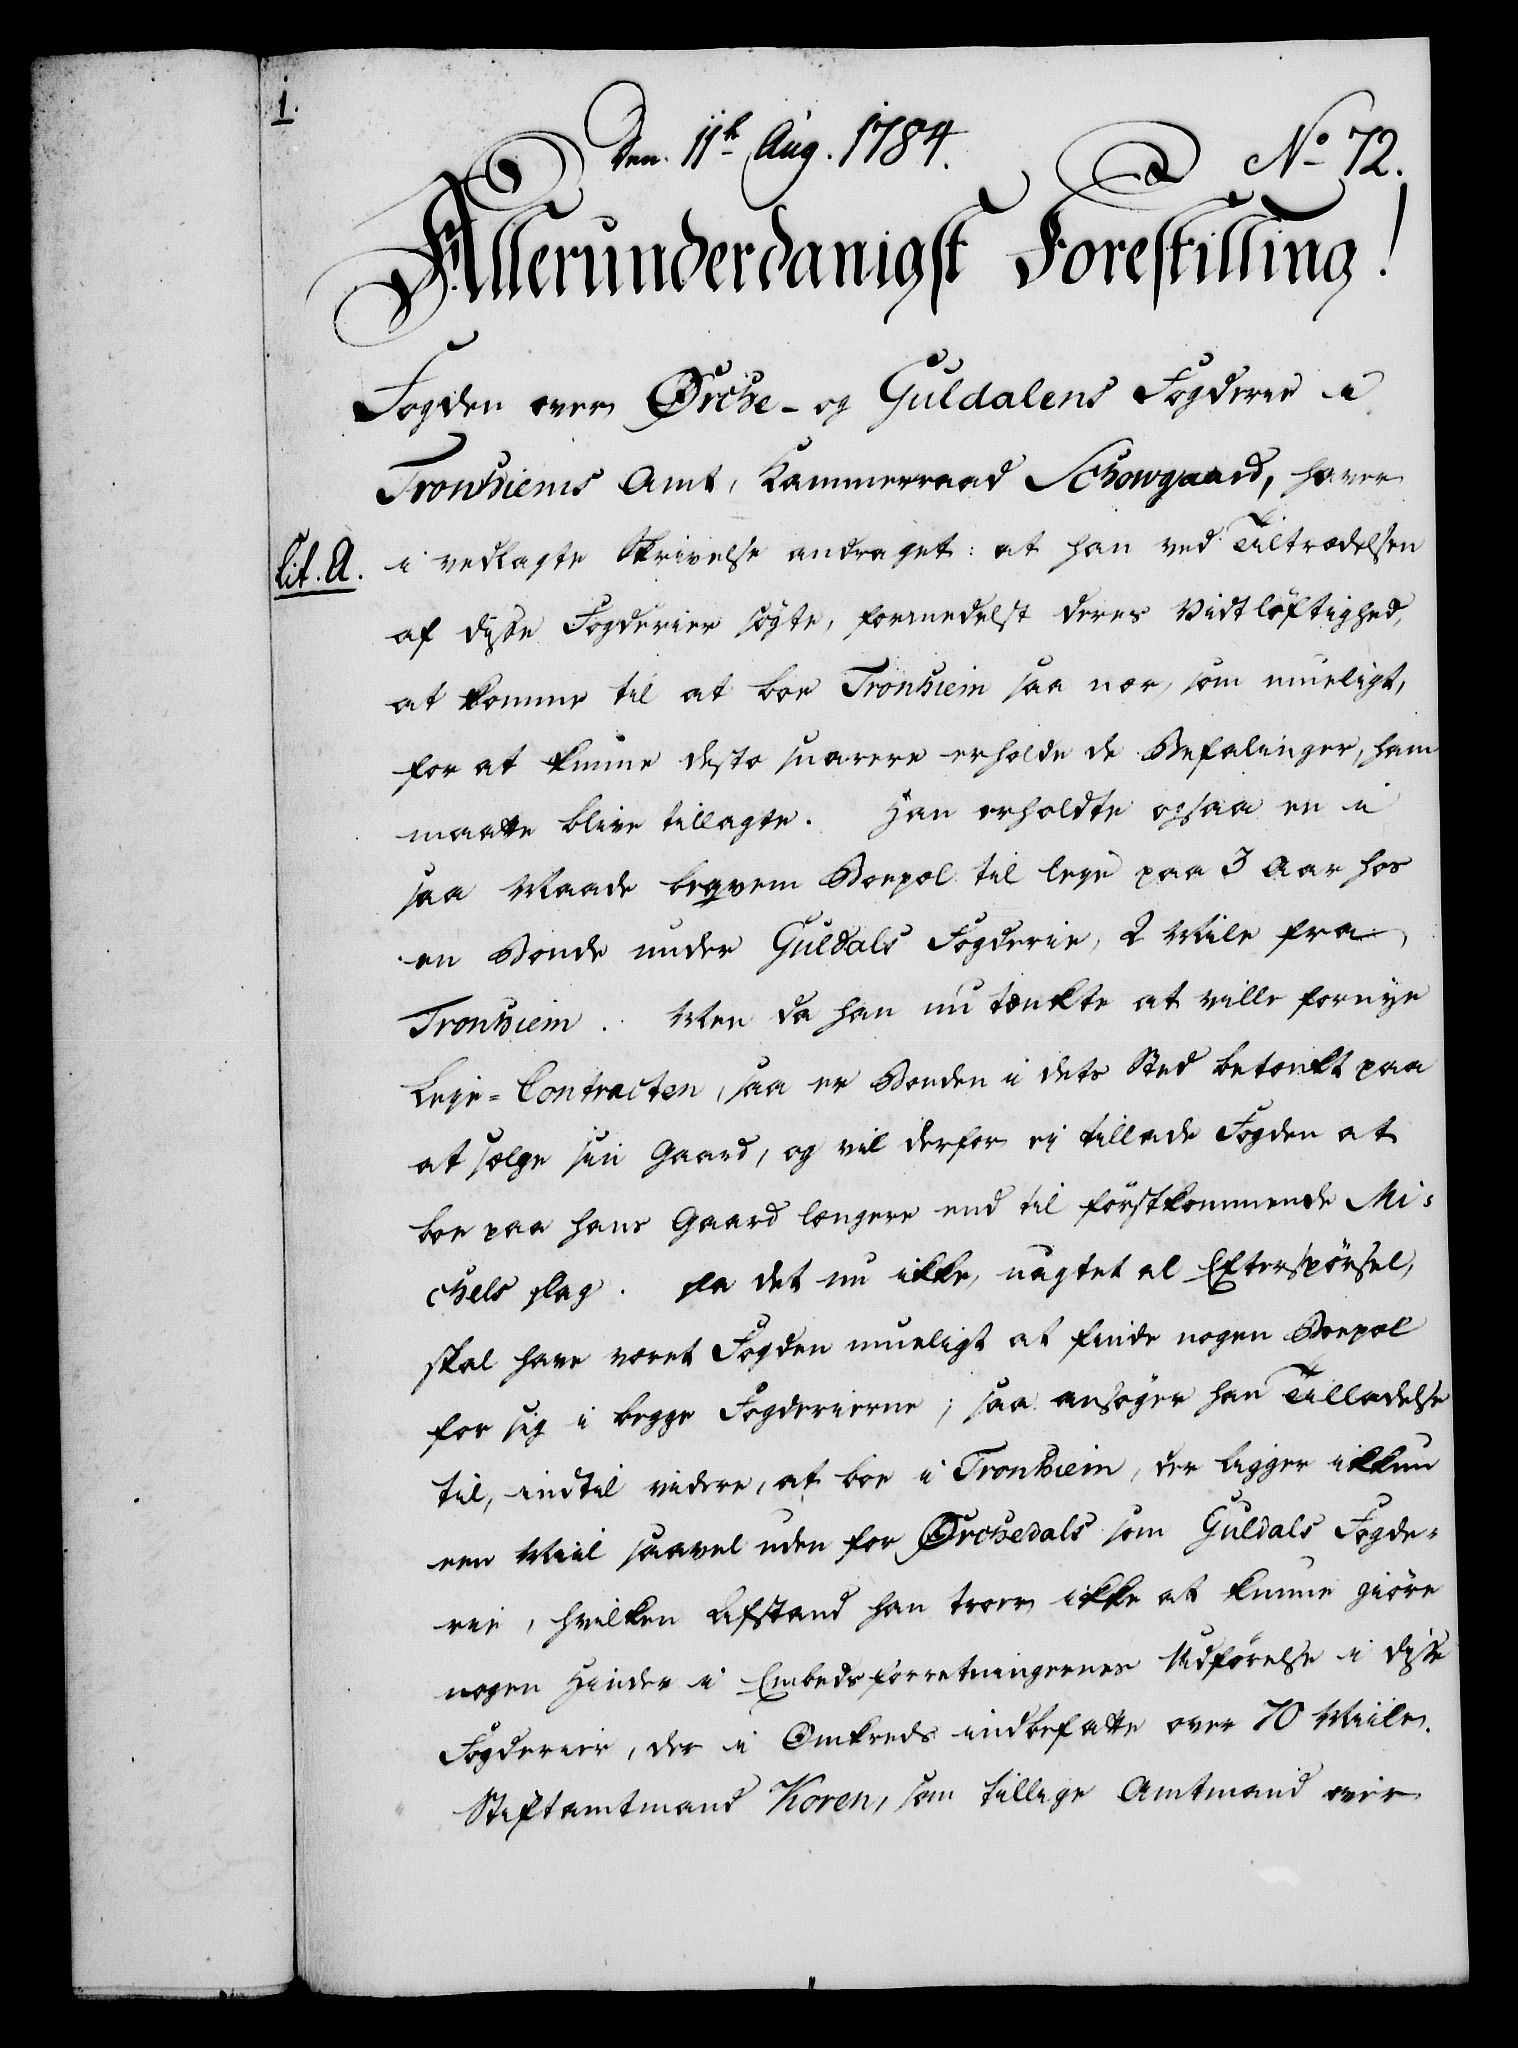 1.
Den 11te Aug. 1784.
No 72.
Allerunderdanigst Forestilling!
Fogden over Örche- og Guldalens Fogderie i
Tronhiems Amt, Kammerraad Schowgaard, haver
Lit. A.
i vedlagte Skrivelse andraget: at han ved Tiltrædelsen
af disse Fogderier søgte, formedelst deres Vidtløftighed,
at komme til at boe Tronhiem saa nær, som mueligt,
for at kunne desto snarere erholde de Befalinger, ham
maatte blive tillagte. Han erholdte ogsaa en i
saa Maade beqvem Boepæl til leye paa 3 Aar hos
en Bonde under Guldals Fogderie, 2 Mile fra
Tronhiem. Men da han nu tænkte at ville fornye
Leye-Contracten, saa er Bonden i dets Sted betænkt paa
at sælge sin Gaard, og vil derfor ej tillade Fogden at
boe paa hans Gaard længere end til førstkommende Mi-
chels Dag. Da det nu ikke, uagtet al Efterspørsel,
skal have været Fogden mueligt at finde nogen Boepæl
for sig i begge Fogderierne; saa ansøger han Tilladelse
til, indtil videre, at boe i Tronhiem, der ligger ikkun
een Miil saavel uden for Örchedals som Guldals Fogde-
rie, hvilken Afstand han troer ikke at kunne giøre
nogen Hinder i Embedsforretningernes Udførelse i disse
Fogderier, der i Omkreds indbefatte over 70 Miile.
Stiftamtmand Koren, som tillige Amtmand over